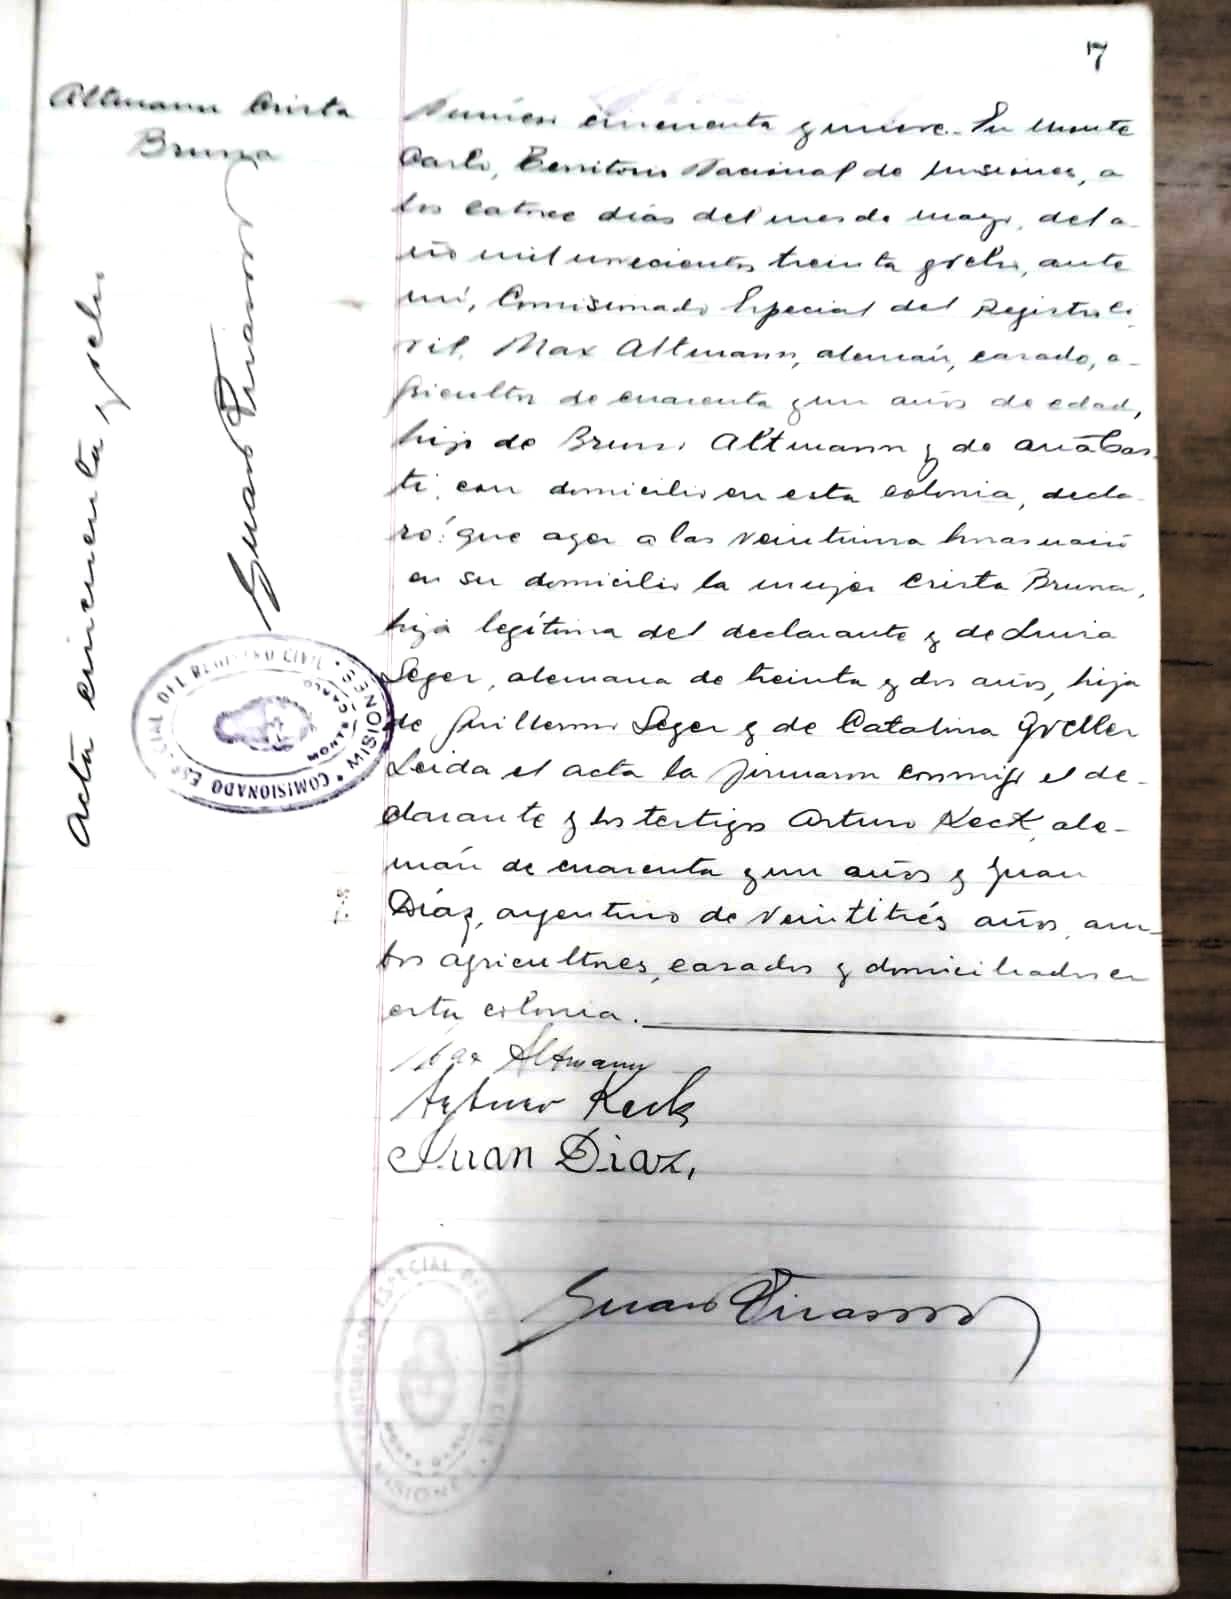 7
Altmann Crista
Bruna
Acta cincuenta y ocho
Número cincuenta y nueve. En Monte
Carlo, Territorio Nacional de Misiones, a
los catorce dias del mes de mayo, del a-
ño mil novecientos treinta y ocho, ante
mí, Comisionado Especial del Registro Ci-
vil, Max Altmann, alemán, casado, a-
gricultor de cuarenta y un años de edad,
hijo de Bruno Altmann y de
con domicilio en esta colonia, decla-
ró: que ayer a las veintiuna horas nació
en su domicilio la mujer Crista Bruna,
hija legítima del declarante y de Luisa
Seger, alemana de treinta y dos años, hija
de Guillermo Seger y de Catalina
Leida el acta la firmaron conmigo el de-
clarante y los testigos Arturo Keck, ale-
mán de cuarenta y un años y Juan
Díaz, argentino de veintitrés años, am-
bos agricultores, casados y domiciliados en
esta colonia.
Max Altmann
Arturo Keck
Juan Diaz,
COMISIONADO ESPECIAL DEL REGISTRO CIVIL • MISIONES •
MONTE CARLO
ESPECIAL DEL
MISIONES